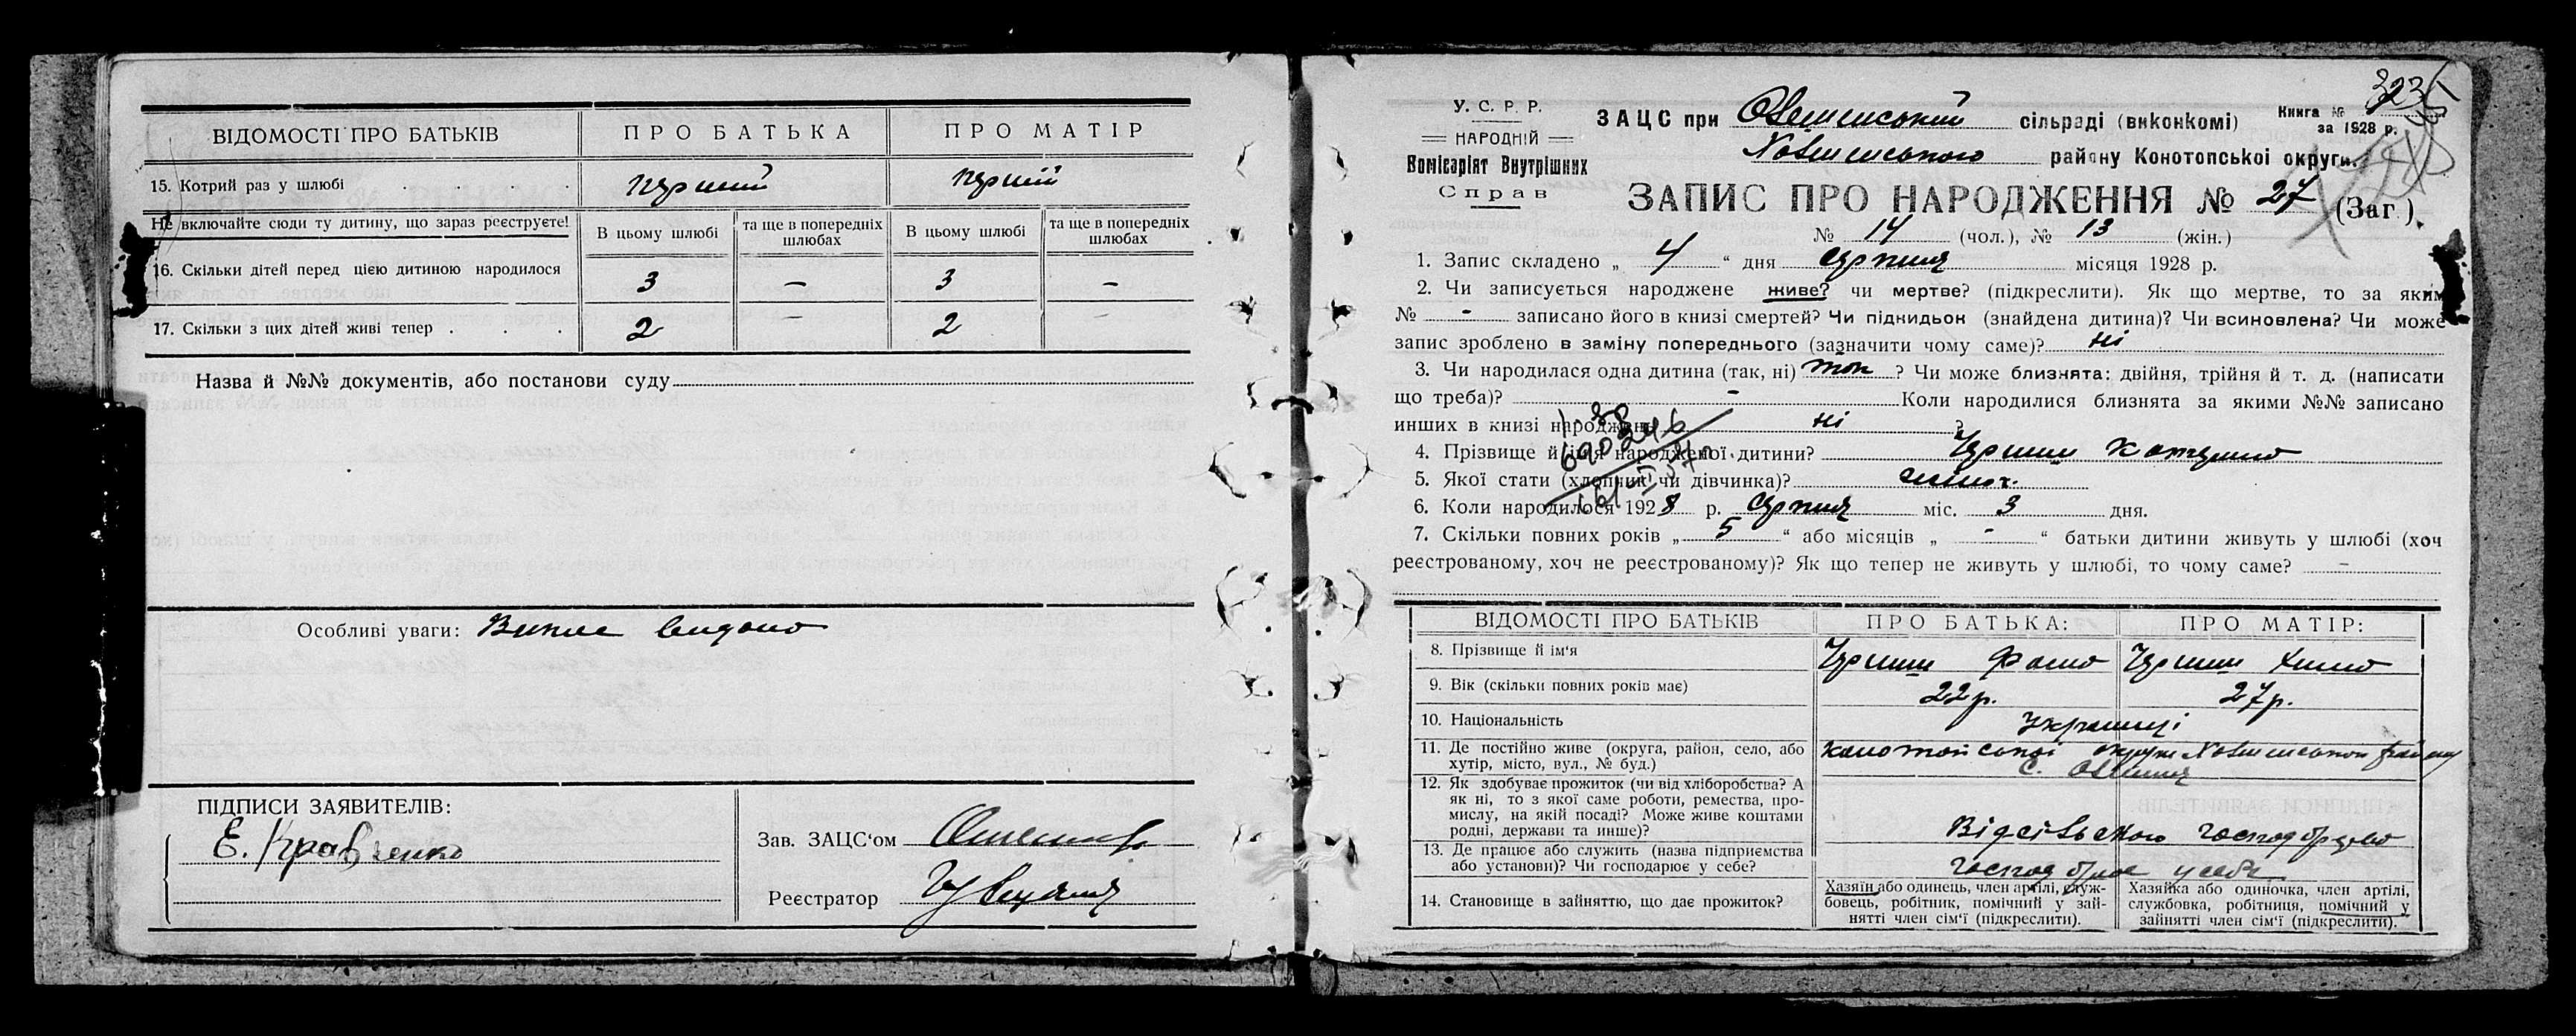 ВІДОМОСТІ ПРО БАТЬКІВ ПРО БАТЬКА ПРО МАТІР
15. Котрий раз у шлюбі . . . . перший перший
Не включайте сюди ту дитину, що зараз реєструєте! В цьому шлюбі та ще в попередніх шлюбах В цьому шлюбі та ще в попередніх шлюбах
16. Скільки дітей перед цією дитиною народилося 3 — 3 —
17. Скільки з цих дітей живі тепер . . . 2 — 2 —
Назва й №№ документів, або постанови суду
Особливі уваги: Випис видано
ПІДПИСИ ЗАЯВИТЕЛІВ:
Е. Кравченко
Зав. ЗАЦС'ом
Реєстратор
У. С. Р. Р.
НАРОДНІЙ
Комісаріят Внутрішних
Справ
ЗАЦС при сільраді (виконкомі)
району Конотопської округи.
Книга №
за 1928 р.
ЗАПИС ПРО НАРОДЖЕННЯ № 27 (Заг.).
№ 14 (чол.), № 13 (жін.)
1. Запис складено „ 4 “ дня серпня місяця 1928 р.
2. Чи записується народжене живе? чи мертве? (підкреслити). Як що мертве, то за яким
№ - записано його в книзі смертей? Чи підкидьок (знайдена дитина)? Чи всиновлена? Чи може
запис зроблено в заміну попереднього (зазначити чому саме)? ні
3. Чи народилася одна дитина (так, ні) так ? Чи може близнята: двійня, трійня й т. д. (написати
що треба)? - Коли народилися близнята за якими №№ записано
инших в книзі народжень ні ?
4. Прізвище й імя народженої дитини? Катерина
5. Якої стати (хлопчик чи дівчинка)? жіноч.
6. Коли народилося 1928 р. серпня міс. 3 дня.
7. Скільки повних років „ 5 “ або місяців „ - “ батьки дитини живуть у шлюбі (хоч
реєстрованому, хоч не реєстрованому)? Як що тепер не живуть у шлюбі, то чому саме? —
ВІДОМОСТІ ПРО БАТЬКІВ ПРО БАТЬКА: ПРО МАТІР:
8. Прізвище й ім'я
9. Вік (скільки повних років має) 22 р. 27 р.
10. Національність Українці
11. Де постійно живе (округа, район, село, або
хутір, місто, вул., № буд.) Конотопської округи району
с.
12. Як здобуває прожиток (чи від хліборобства? А
як ні, то з якої саме роботи, ремества, про-
мислу, на якій посаді? Може живе коштами
родні, держави та инше)? Від сільського господарства
13. Де працює або служить (назва підприємства
або установи)? Чи господарює у себе? господарює у себе
14. Становище в зайняттю, що дає прожиток?
Хазяїн або одинець, член артілі, служ-
бовець, робітник, помічний у зай-
нятті член сім'ї (підкреслити).
Хазяйка або одиночка, член артілі,
службовка, робітниця, помічний у
зайнятті член сім'ї (підкреслити).